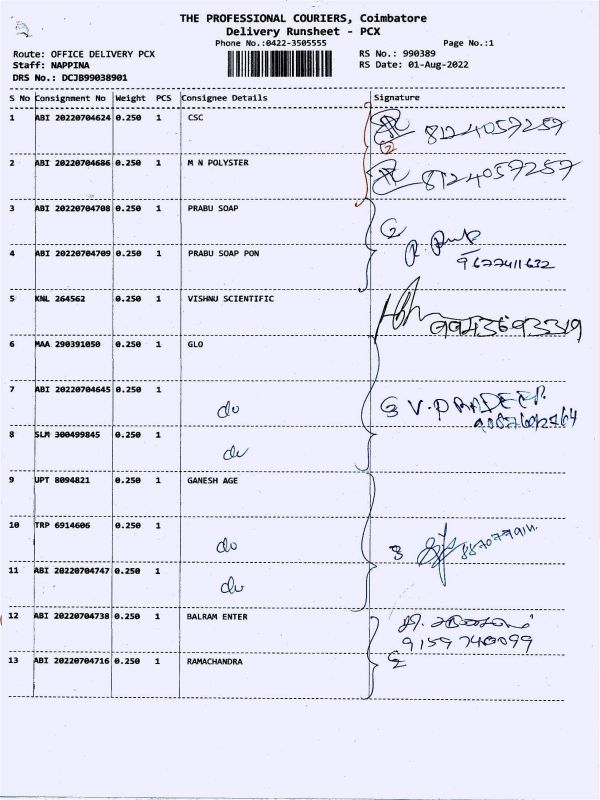 THE PROFESSIONAL COURIERS, Coimbatore
Delivery Runsheet - PCX
Phone No.:0422-3505555 Page No.:1
Route: OFFICE DELIVERY PCX RS No.: 990389
Staff: NAPPINA RS Date: 01-Aug-2022
DRS No.: DCJB99038901
S No Consignment No Weight PCS Consignee Details Signature
1 ABI 20220704624 0.250 1 CSC 8124057257
2
2 ABI 20220704686 0.250 1 M N POLYSTER 8124057257
3 ABI 20220704708 0.250 1 PRABU SOAP 2
4 ABI 20220704709 0.250 1 PRABU SOAP PON
9677411632
5 KNL 264562 0.250 1 VISHNU SCIENTIFIC
9943693319
6 MAA 290391050 0.250 1 GLO
7 ABI 20220704645 0.250 1 do 3 V.PRADEEP.
8 SLM 300499845 0.250 1 do
9 UPT 8094821 0.250 1 GANESH AGE
10 TRP 6914606 0.250 1 do 3
11 ABI 20220704747 0.250 1 do
12 ABI 20220704738 0.250 1 BALRAM ENTER
9159740099
13 ABI 20220704716 0.250 1 RAMACHANDRA 2